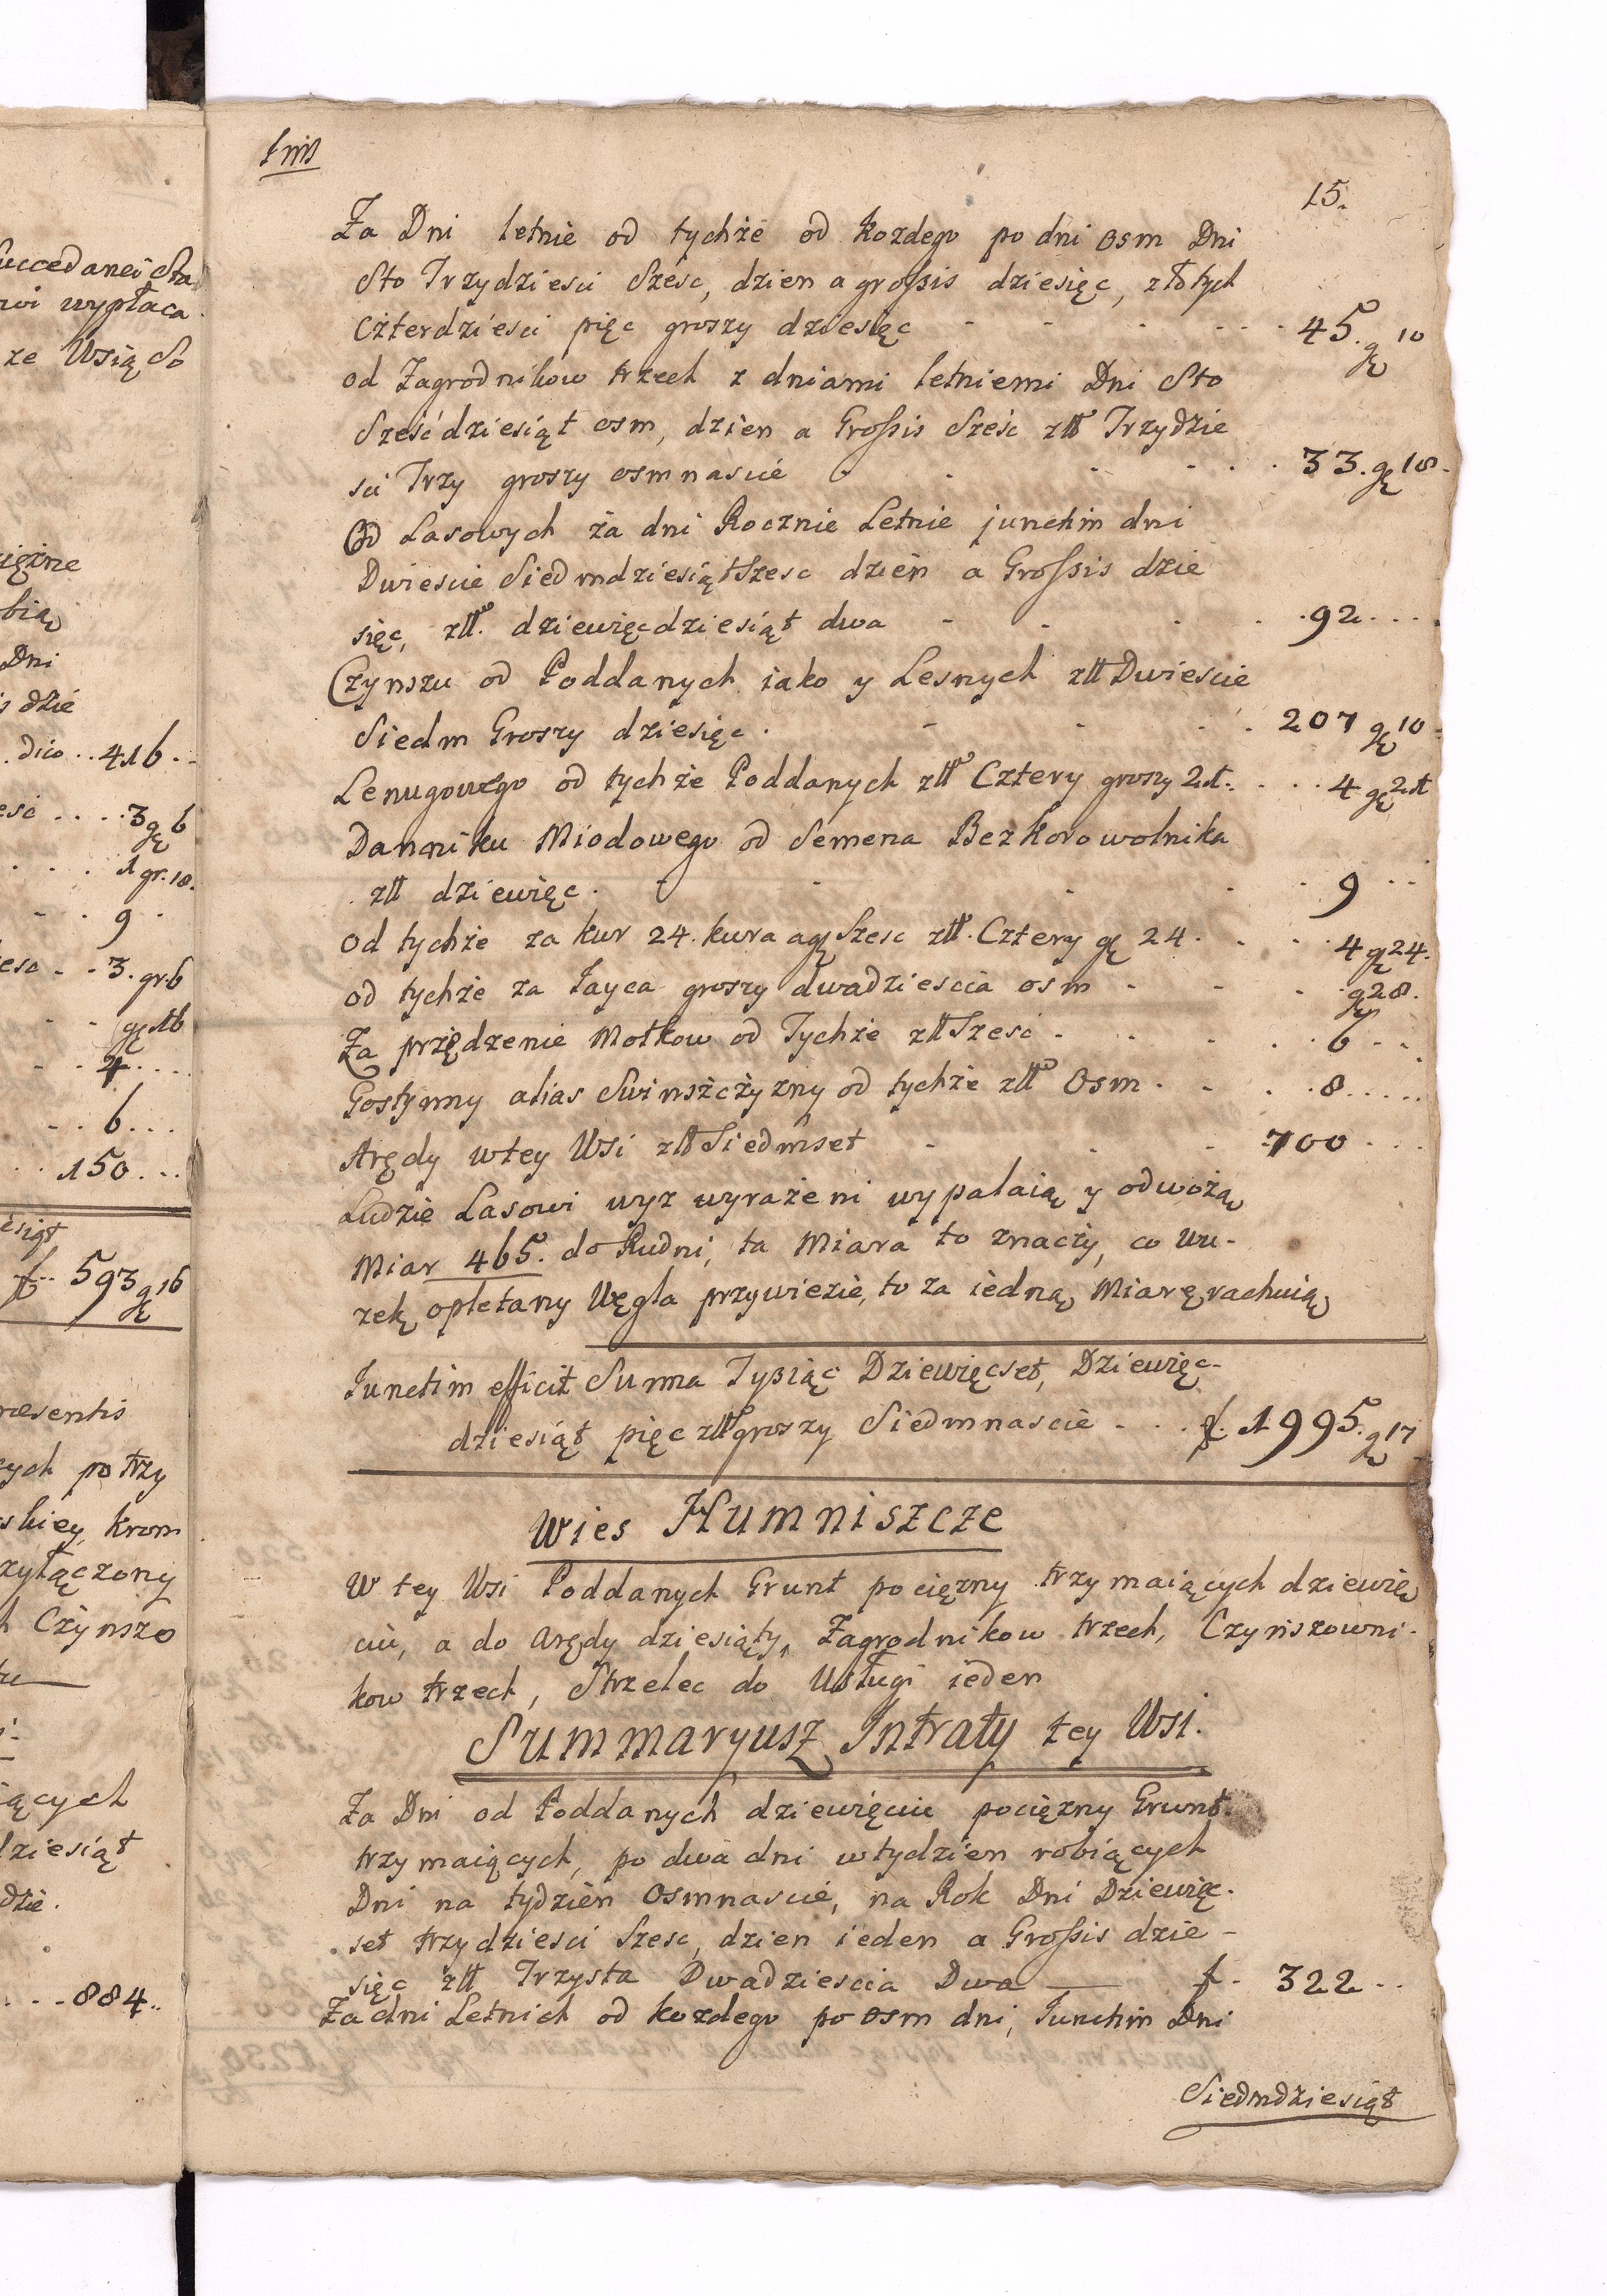 succedanei Sta
wi wypłaca
ze Wsią So
ciężne
bią
Dni
s dzie
dico .. 416 ..
esc .... 3 gr 6
. . . 1 gr. 18.
- . 9 .
esc - - 3. gr. 6
- - gr 16
- . 4 ....
- .. 6 ...
.. 150 ...
esiąt
f .. 593 gr 16
resentis
ych po trzy
skiey, krom
zyłączony
h Czynszo
iących
dziesiąt
dzie.
. . . 884 ..
15.
Za Dni letnie od tychże od kozdego po dni osm Dni
Sto Trzydziesci Szesc, dzien a grossis dziesięc, złotych
Czterdziesci pięc groszy dziesięc - - . - - . 45. gr 10
od Zagrodnikow trzech z dniami letniemi Dni Sto
Sześćdziesiąt osm, dzien a Grossis Sześc złł Trzydzie
sci Trzy groszy osmnascie . . - - . . 33. gr 18.
Od Lasowych za dni Rocznie Letnie junctim dni
Dwiescie Siedmdziesiąt Szesc dzień a Grossis dzie
sięc, złł. dziewięcdziesiąt dwa - . . . . 92 ....
Czynszu od Poddanych iako y Lesnych złł Dwiescie
Siedm Groszy dziesięc . - - . . 207 gr 10
Lenugowego od tychże Poddanych złł Cztery groszy 21. . . . 4 gr 21
Danniku Miodowego od Semena Bezkorowolnika
złł dziewięc . - - - . . 9 ..
Od tychże za kur 24. kura a gr Szesc złł. Cztery gr 24 . . . . 4 gr 24.
od tychże za Jayca groszy dwadziescia osm - - - . gr 28.
Za przędzenie Motkow od Tychże złł Szesc . . . . . 6 . .
Gostynny alias Swinszczyzny od tychże złł Osm . . . . 8 .....
Arędy w tey Wsi złł Siedmset - . - 700 . . .
Ludzie Lasowi wyz wyrażeni wypalaią y odwożą
Miar 465. do Rudni, ta Miara to znaczy, co wu-
zek opletany Węgla przywiezie, to za iedną Miarę rachuią
Junctim efficit Summa Tysiąc Dziewięcset, Dziewięc-
dziesiąt pięc złł groszy Siedmnascie . . . f. 1995. gr 17
Wies Humniszcze
W tey Wsi Poddanych Grunt pociężny trzymaiących dziewię
ciu, a do Arędy dziesiąty, Zagrodnikow trzech, Czynszowni-
kow trzech, Strzelec do Usługi ieden
Summaryusz Intraty tey Wsi.
Za Dni od Poddanych dziewięciu pociężny Grunt
trzymaiących, po dwa dni w tydzien robiących
Dni na tydzień Osmnascie, na Rok Dni Dziewięc.
set trzydziesci Szesc, dzien ieden a Grossis dzie-
sięc złł Trzysta Dwadziescia Dwa — f. 322 ..
Za dni Letnich od kozdego po osm dni, Junctim Dni
Siedmdziesiąt